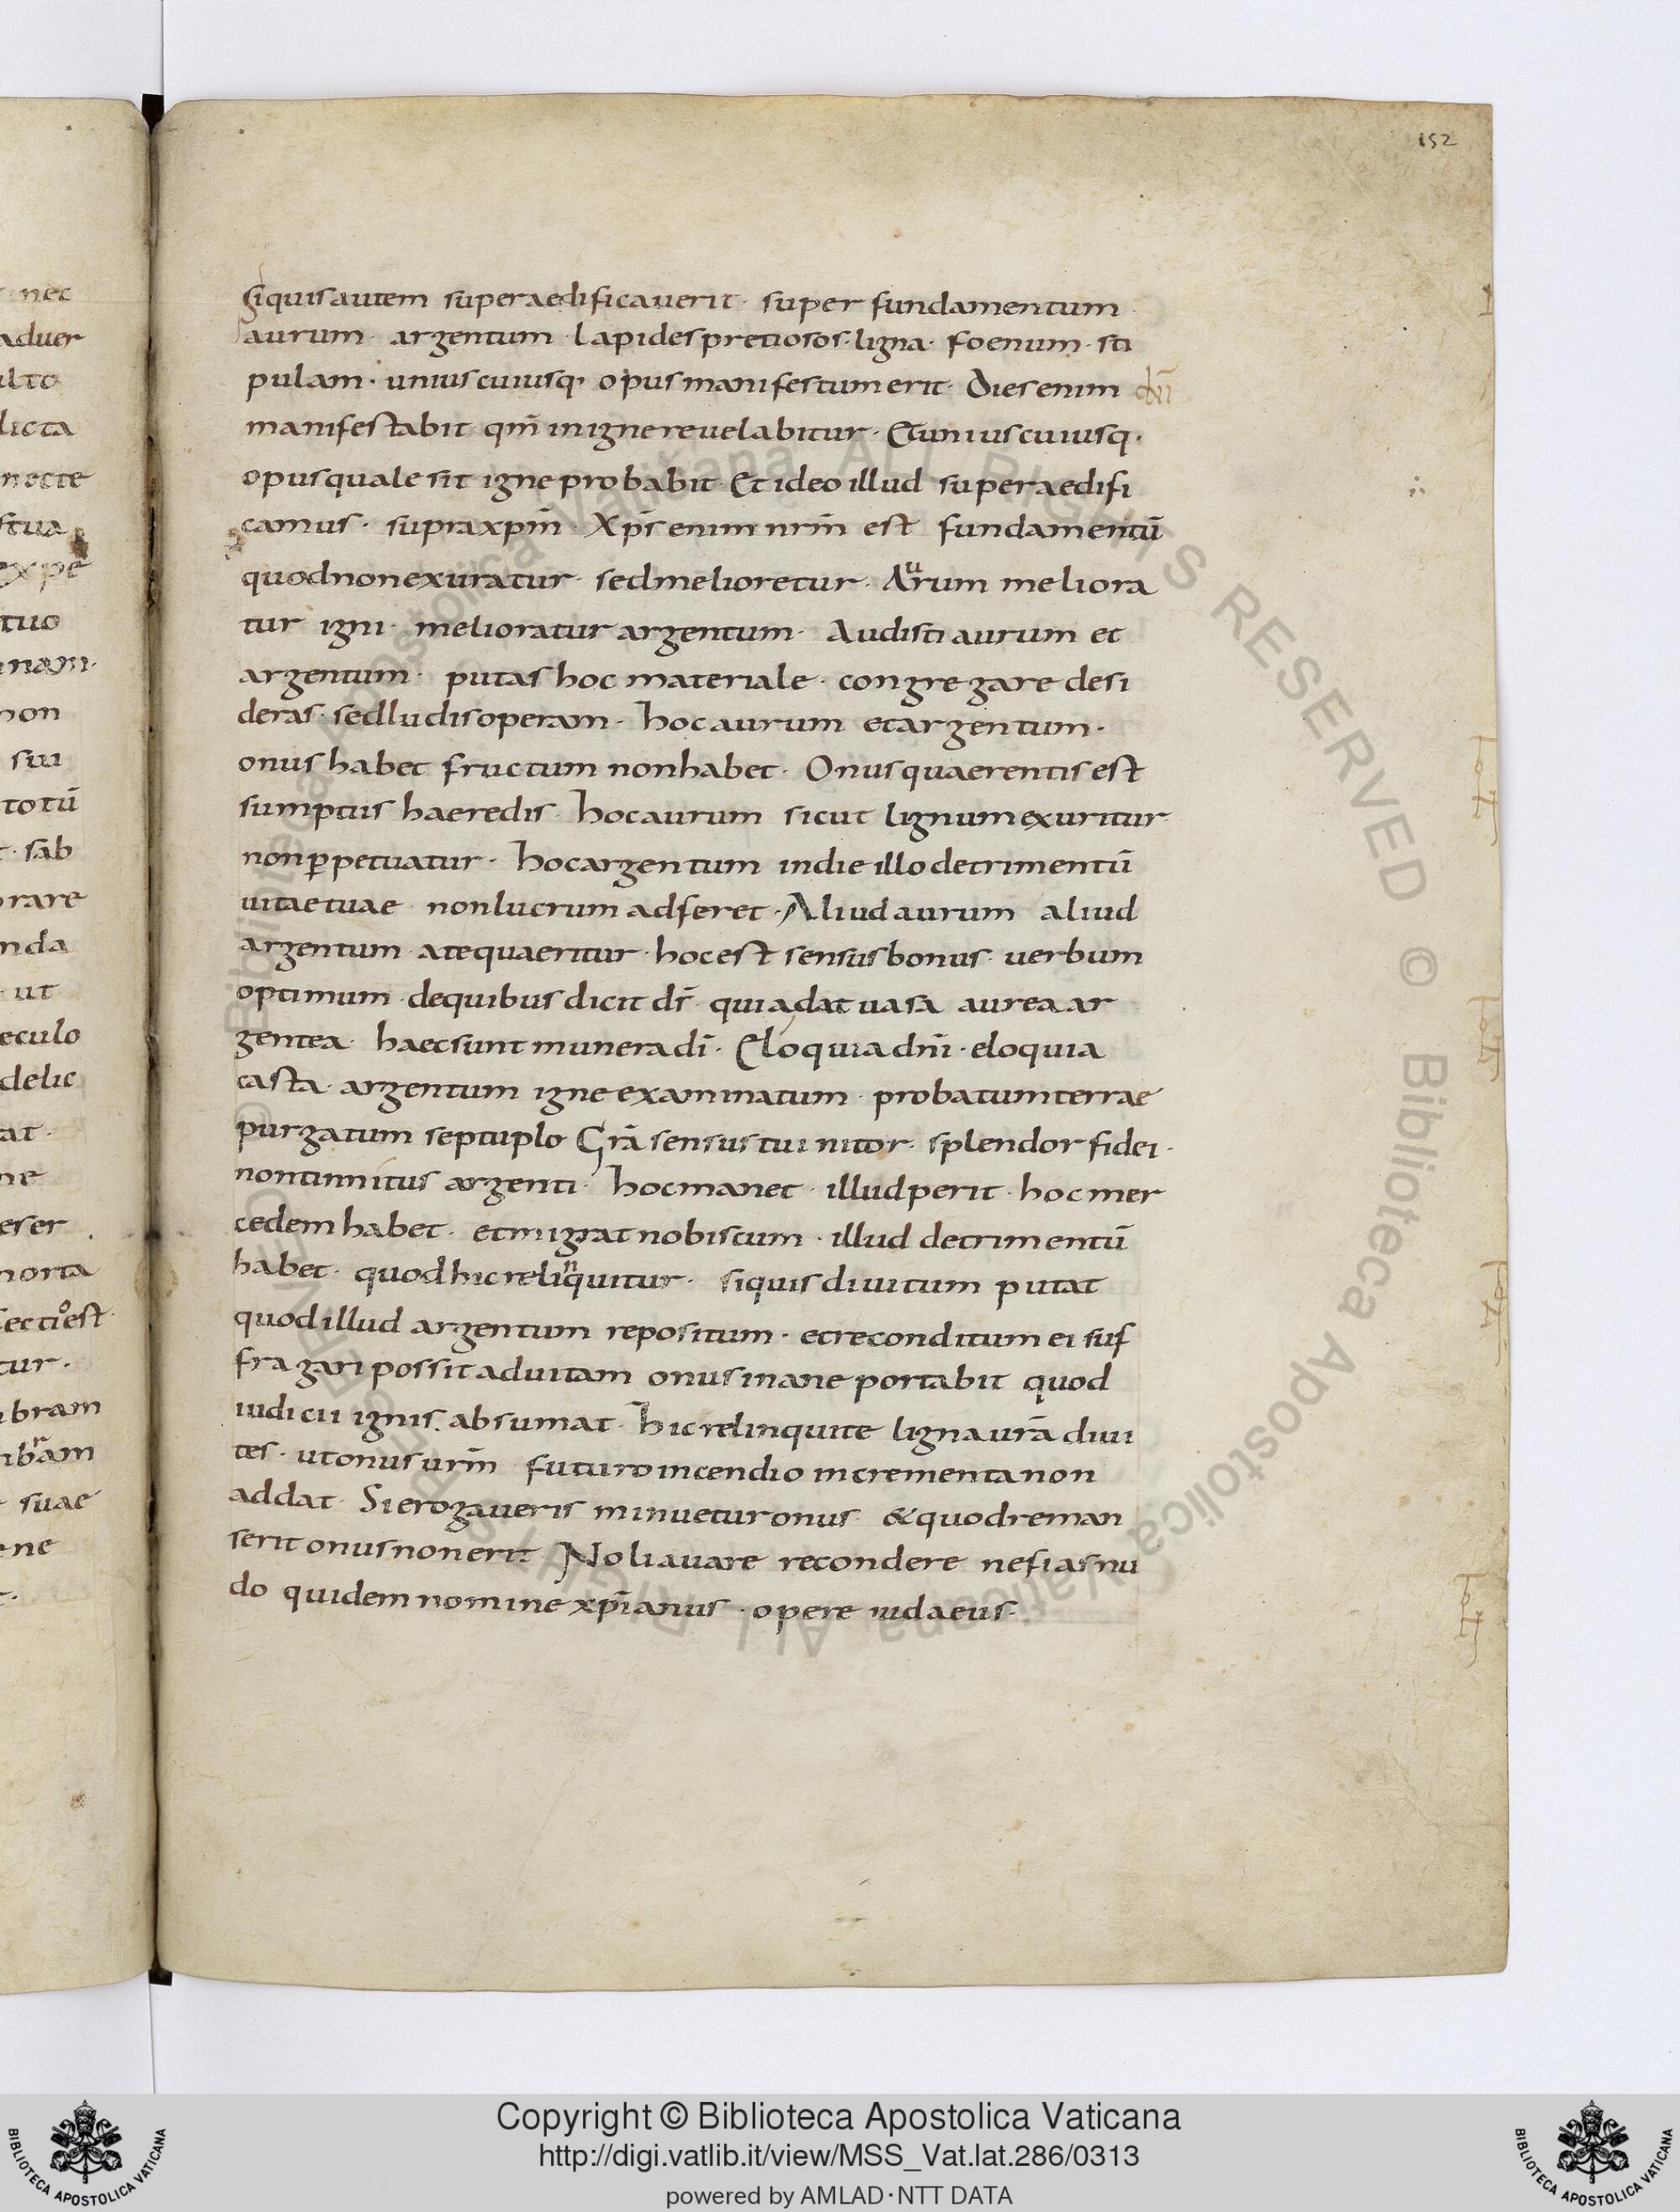 152
nec
aduer
ulto
dicta
necte
stua
expe
tuo
nam·
non
sui
totū
sab
orare
nda
ut
eculo
delic
at·
ne
eser
morta
fectiest
tur·
bram
suae
ne
Siquis autem superaedificauerit· super fundamentum
aurum· argentum· lapides pretiosos· ligna· foenum· sti
pulam· unius cuiusq· opus manifestum erit· Dies enim dn̄i
manifestabit qm̄ in igne reuelabitur· Et unius cuiusq·
opus quale sit igne probabit· Et ideo illud superaedifi
camus· supra xpm̄· Xps̄ enim nrm̄ est fundamentū
quod non exuratur· sed melioretur· Aurum meliora
tur igni· melioratur argentum· Audisti aurum et
argentum· putas hoc materiale· congregare desi
deras· sed ludis operam· hoc aurum et argentum·
onus habet fructum non habet· Onus quaerentis est
sumptus haeredis· hoc aurum sicut lignum exuritur
non ꝑpetuatur· hoc argentum in die illo detrimentū
uitae tuae non lucrum adferet· Aliud aurum aliud
argentum a te quaeritur· hoc est sensus bonus· uerbum
optimum· de quibus dicit ds̄· quia dat uasa aurea ar
gentea· haec sunt munera dī· Eloquia dn̄i· eloquia
casta· argentum igne examinatum· probatum terrae
purgatum septuplo Grā sensus tui nitor· splendor fidei·
non tinnitus argenti· hoc manet· illud perit· hoc mer
cedem habet· et migrat nobiscum· illud detrimentū
habet· quod hic relinquitur· si quis diuitum putat
quod illud argentum repositum· et reconditum ei suf
fragari possit ad uitam onus inane portabit quod
iudicii ignis absumat· hic relinquite ligna urā diui
tes· ut onus urm̄ futuro incendio incrementa non
addat· Si erogaueris minuetur onus· & quod reman
serit onus non erit· Noli auare recondere ne fias nu
do quidem nomine xp̄ianus· opere iudaeus·
© Biblioteca Apostolica Vaticana ALL RIGHTS RESERVED © Biblioteca Apostolica Vaticana ALL RIGHTS RESERVED
Copyright © Biblioteca Apostolica Vaticana
http://digi.vatlib.it/view/MSS_Vat.lat.286/0313
powered by AMLAD·NTT DATA
BIBLIOTECA APOSTOLICA VATICANA
BIBLIOTECA APOSTOLICA VATICANA